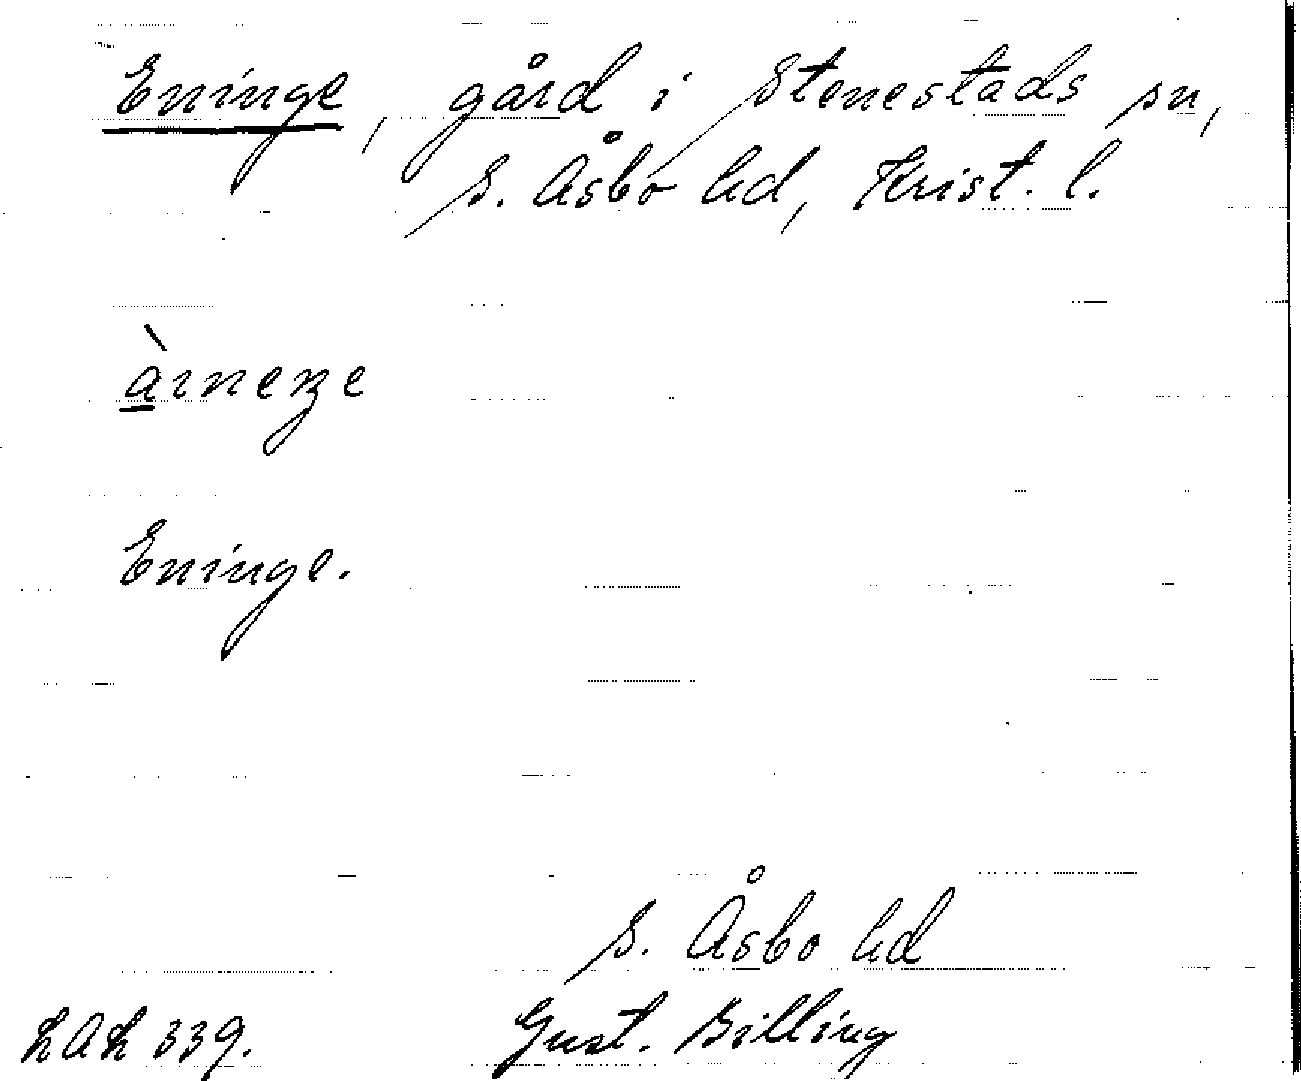 Eninge, gård i Stenestads sn,
S. Åsbo hd, Krist. l.
Eninge.
S. Åsbo hd
LAL 339.
Gust. Billing